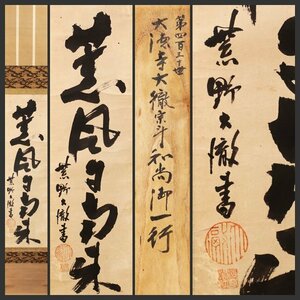 薫風自南来
紫野大徹書
薫風自南来
紫野大徹書
第四百三十世
大徳寺大徹宗斗和尚御一行
紫野大徹書